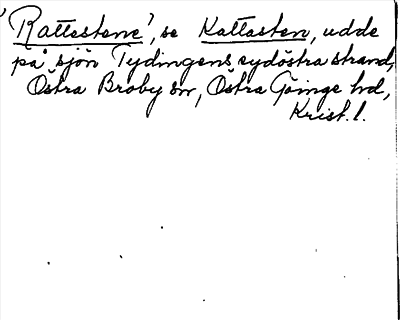 'Rattestene', se Kattasten, udde
på sjön Tydingens sydöstra strand,
Östra Broby sn, Östra Göinge hd,
Krist. l.